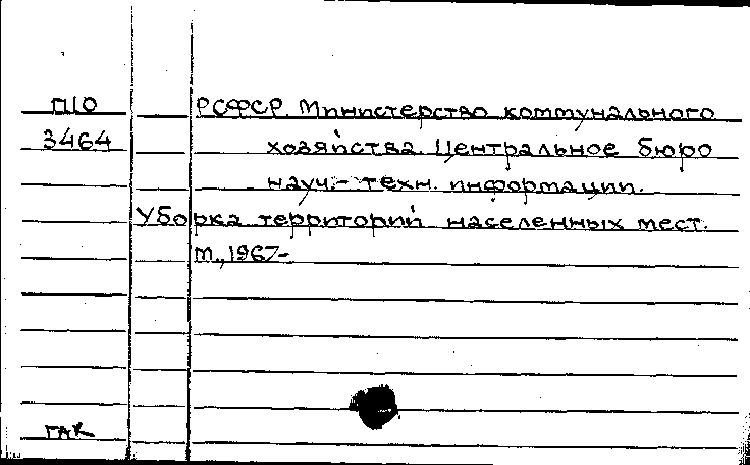 П10
РСФСР. Министерство коммунального
3464
хозяйства. Центральное бюро
науч.-техн. информации.
Уборка территорий населенных мест.
М., 1967-
ГАК